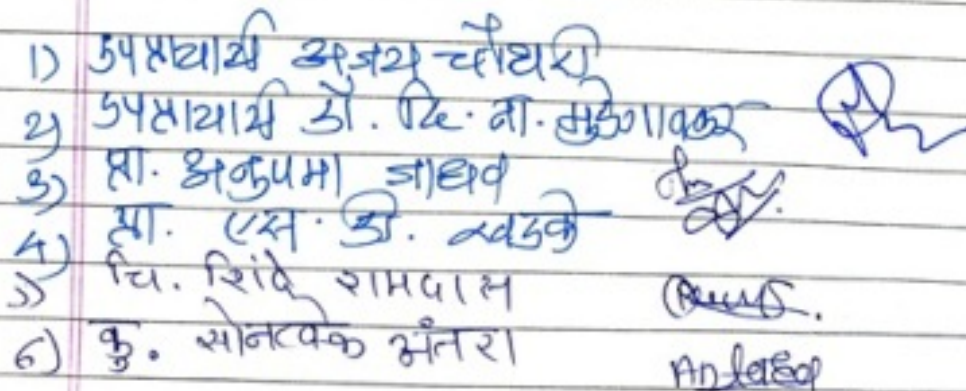 1) उपप्राचार्य अजय चौधरी
2) उपप्राचार्य डॉ. दि. ना. मुडेगावकर
3) प्रा. अनुपमा जाधव
4) प्रा. एस. डी. खडके
5) चि. शिंदे रामदास
6) कु. सोनटक्के अंतरा